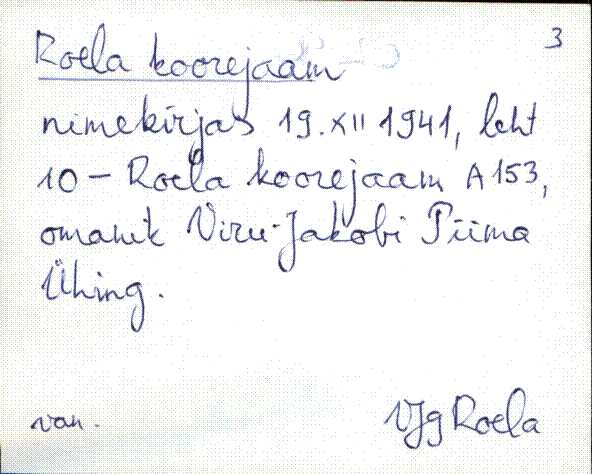 3
Roela koorejaam
nimekirjas 19.XII 1941, leht
10 – Roela koorejaam A 153,
omanik Viru-Jakobi Piima
Ühing.
van.
VJg Roela